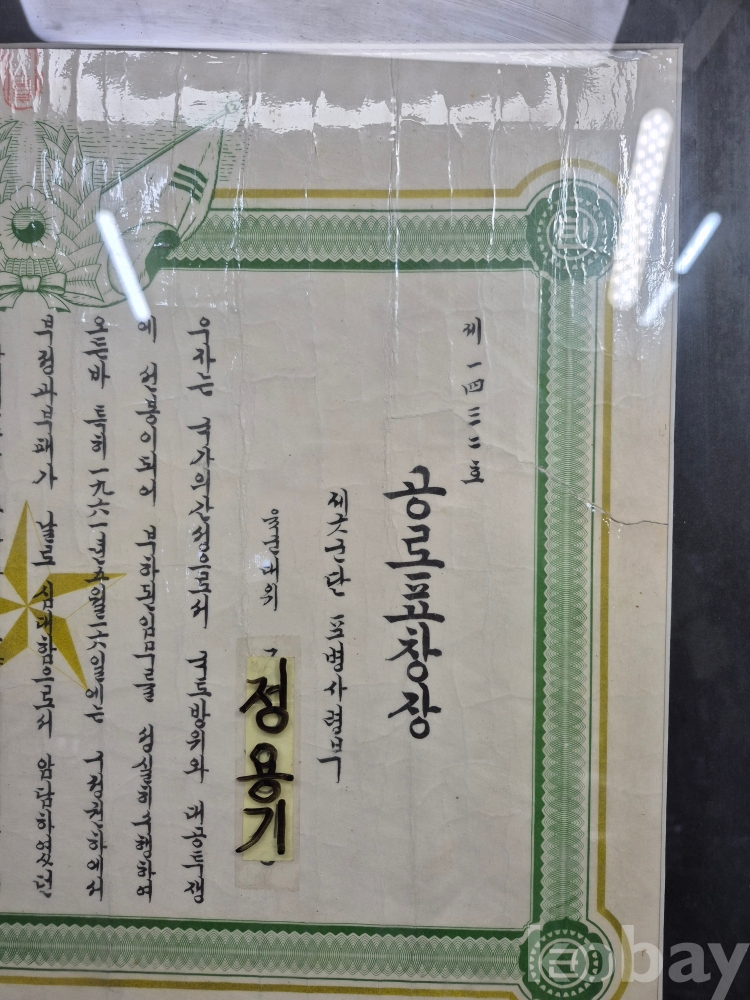 제 一四三二호
공로표창장
제六군단 포병사령부
육군대위
정용기
우자는 국가의 간성으로서 국토방위와 대공투쟁
에 선봉이 되어 부하된 임무를 성실히 수행하여
오든바 특히 一九六一년 五월 十六일 구정권하의
부정과 부패가 날로 심대함으로서 암담하였던